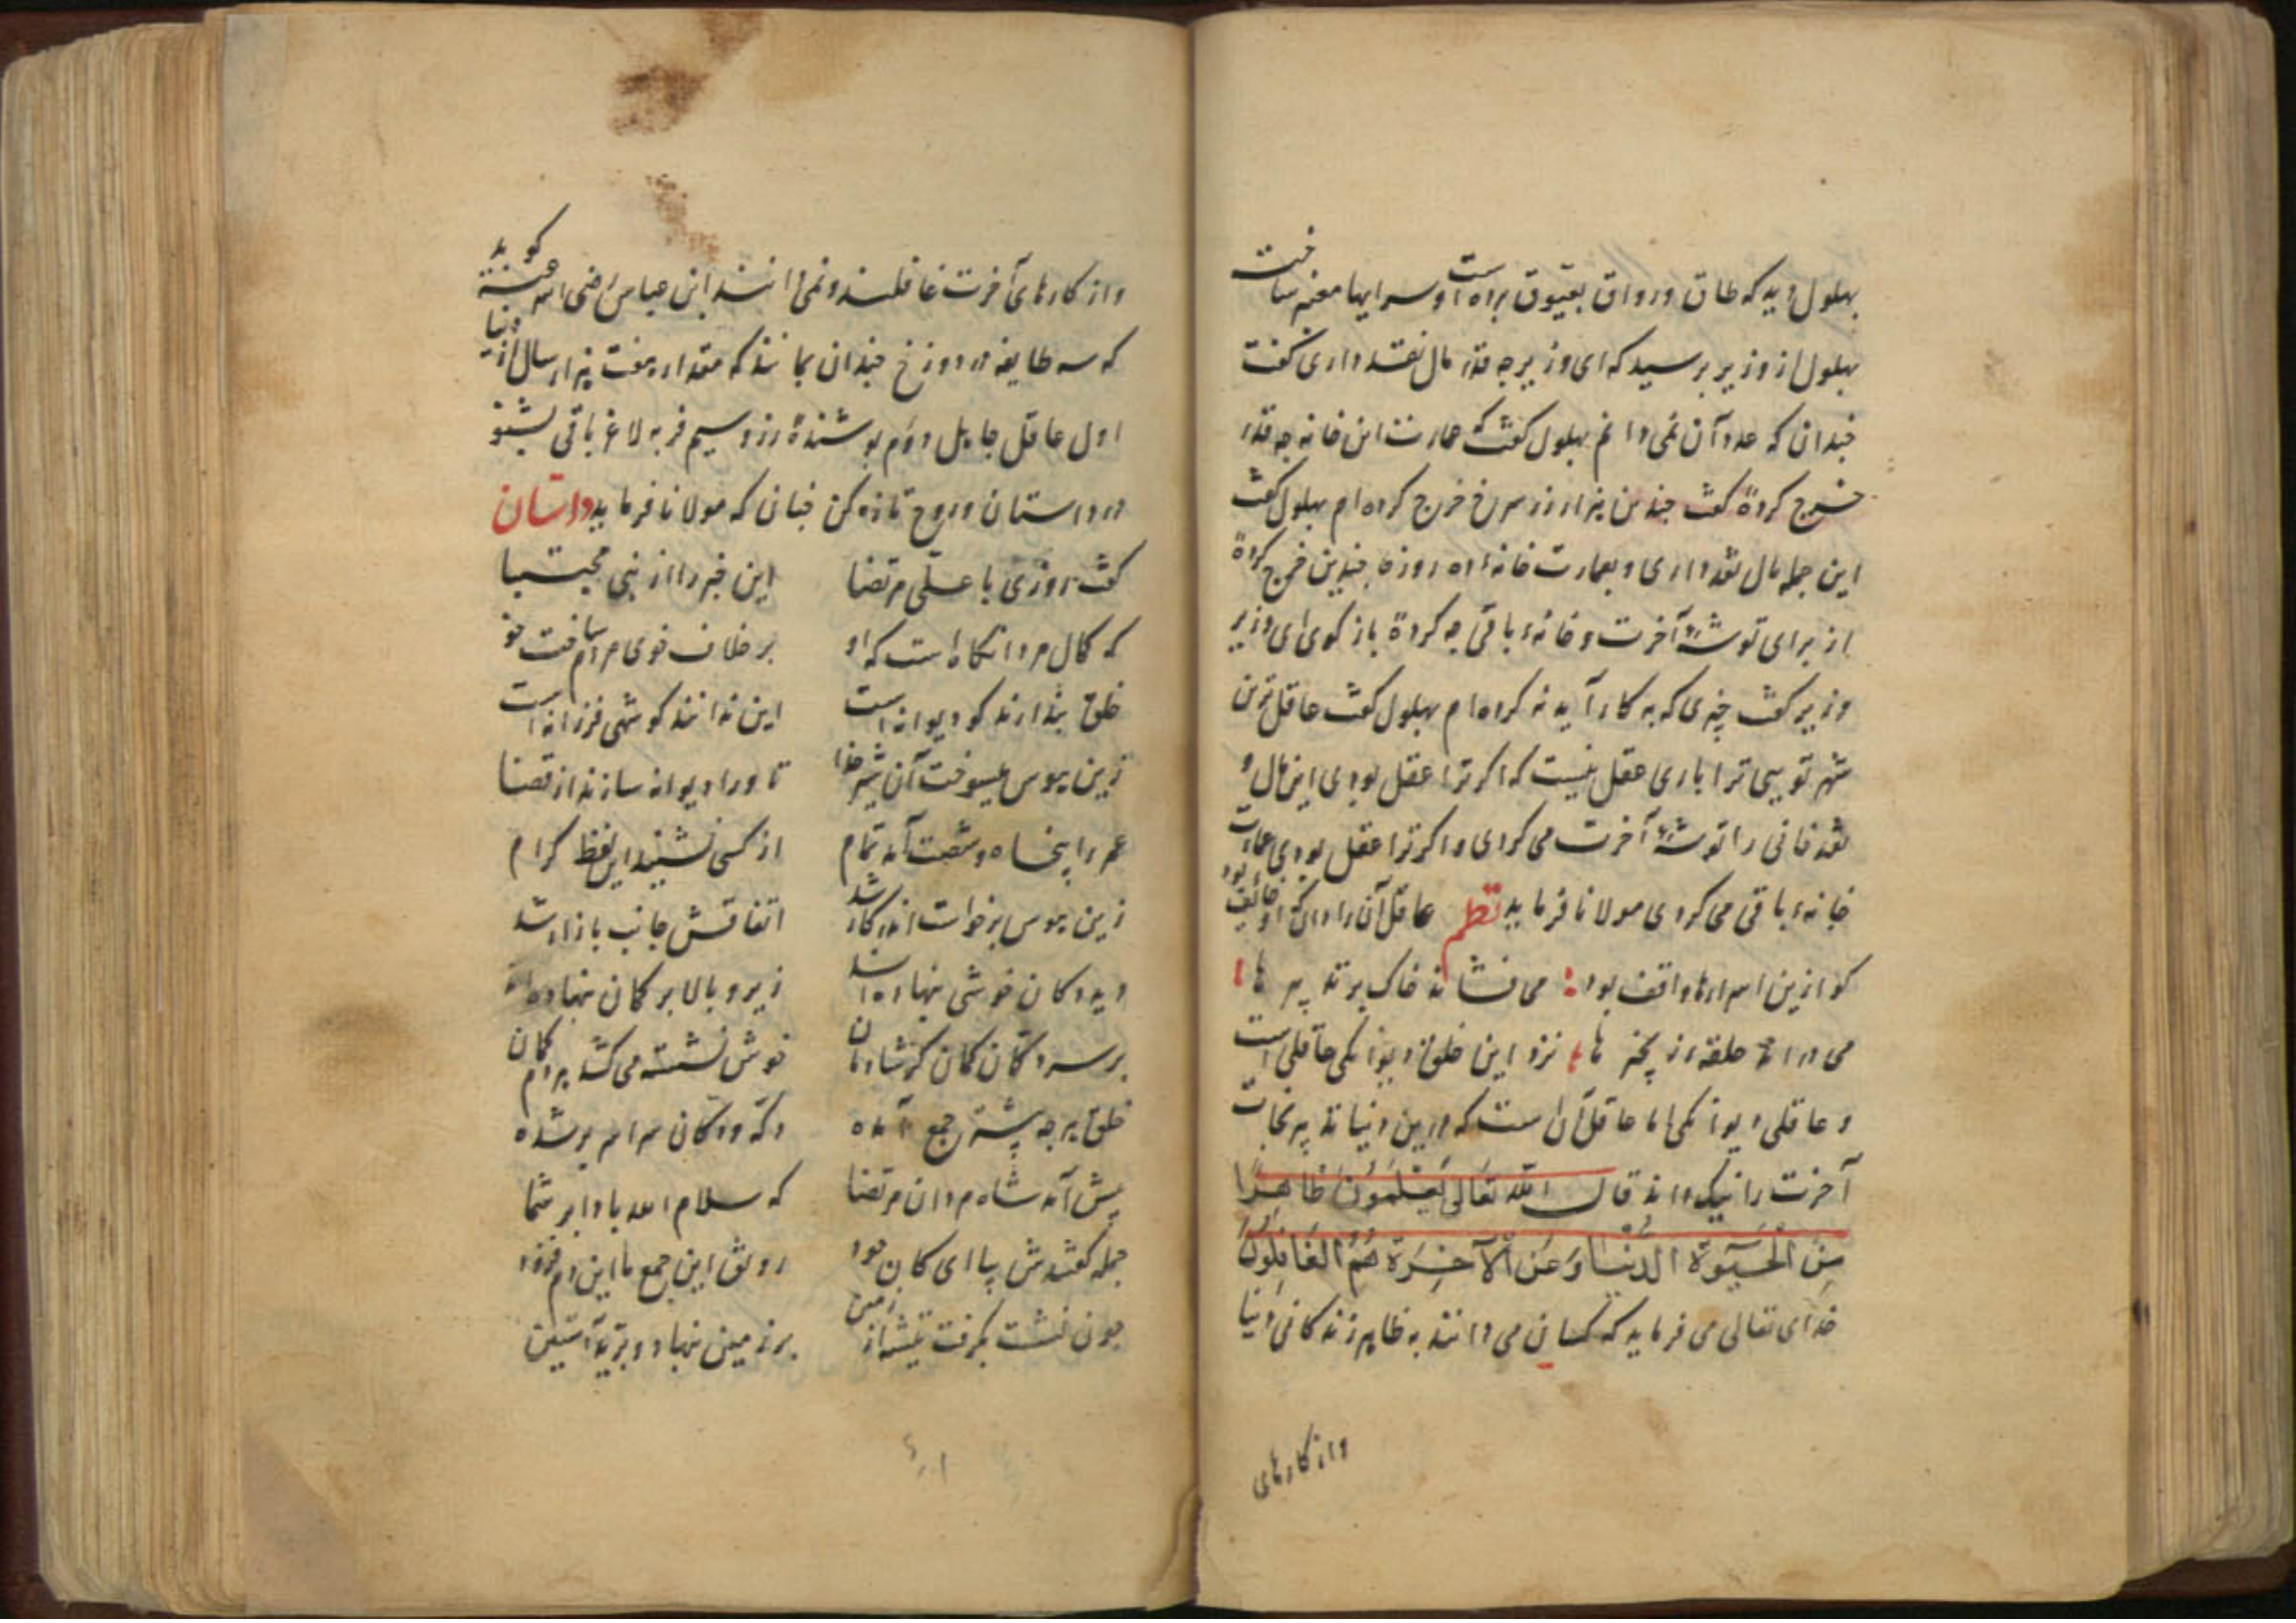 بهلول دید که طاق و رواق بعیّوق برده است و سرایها معتبر ساخت
بهلول از وزیر پرسید که ای وزیر چه قدر مال نقد داری گفت
چندان که عدد آن نمی دانم بهلول گفت که عمارت این خانه چه قدر
خرج کردهٔ گفت چندین هزار زر سرخ خرج کرده ام بهلول گفت
این جمله مال نقد داری و بعمارت خانهٔ ده روزه چندین خرج کردهٔ
از برای توشهٔ آخرت و خانهٔ باقی چه کردهٔ باز گوی ای وزیر
وزیر گفت چیزی که به کار آید نه کرده ام بهلول گفت عاقل ترین
شهر تویی ترا باری عقل نیست که اگر ترا عقل بودی این مال و
نقد فانی را توشهٔ آخرت می کردی و اگر ترا عقل بودی عمارت
خانهٔ باقی می کردی مولانا فرماید نظم عاقل آن را دان که او خائف بود
کو ازین اسرارها واقف بود می فشاند خاک بر تدبیر ها
می دراند حلقه از زنجیر ها نزد این خلق دیوانگی عاقلی است
و عاقلی دیوانگی اما عاقل آن است که درین دنیا تدبیر نجات
آخرت را نیک داند قال الله تعالی یَعْلَمُونَ ظَاهِرًا
مِنَ الْحَیٰوةِ الدُّنْیَا وَ عَنِ الْآخِرَةِ هُمُ الْغَافِلُونَ
خدای تعالی می فرماید که کسانی می دانند به ظاهر زندگانی دنیا
و از کارهای
و از کارهای آخرت غافلند و نمی دانند ابن عباس رضی الله عنه گوید
که سه طایفه در دوزخ چندان بمانند که مقدار هفت هزار سال از دنیا
اول عاقل جاهل دوّم پوشندهٔ زر و سیم فربه لاغر باقی بشنو
در داستان و روح تازه کن چنان که مولانا فرماید داستان
گفت روزی با علی مرتضا این خبر را از نبی مجتبا
که کمال مرد آنگاه است که او بر خلاف خوی مردم ساخت خو
خلق پندارند کو دیوانه است این ندانند کو شهی فرزانه است
زین هوس میسوخت آن شیر خدا تا ورا دیوانه سازند از قضا
عمر را پنجاه و شصت آمد تمام از کسی نشنید این لفظ کرام
زین هوس برخواست اندر کار شد اتفاقش جانب بازار شد
دید دکان خوشی بنهاده اند زیر و بالا بر کمان بنهاده اند
بر سر دکّان کمان گر شادمان خوش نشسته می کشد هر دم کمان
خلق هر چه پیشتر جمع آمده دکّه و دکان سراسر پر شده
پیش آمد شاه مردان مرتضا که سلام الله بادا بر شما
جمله گفتندش بیا ای کان جود رونق این جمع ما این دم فزود
چون نشست بگرفت تیشه از زمین بر زمین بنهاد و برزد آستین